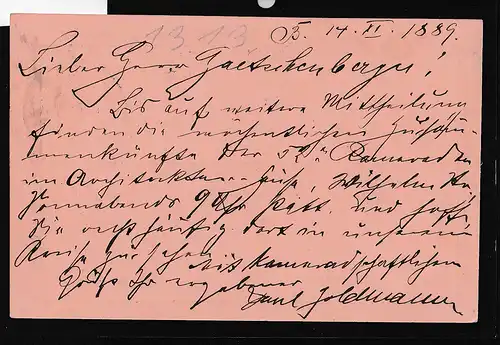 B. 14. XI. 1889.
Lieber Herr Goetschenberger!
Bis auf weitere Mittheilung
finden die wöchentlichen Zusam-
menkünfte der 52er Kameraden
im Architekten-Hause, Wilhelm Str.
Sonnabends 9 Uhr statt und hoffe
Sie recht häufig dort in unserem
Kreise zu sehen
Mit kameradschaftlichem
Gruß Ihr ergebener
Paul Goldmann